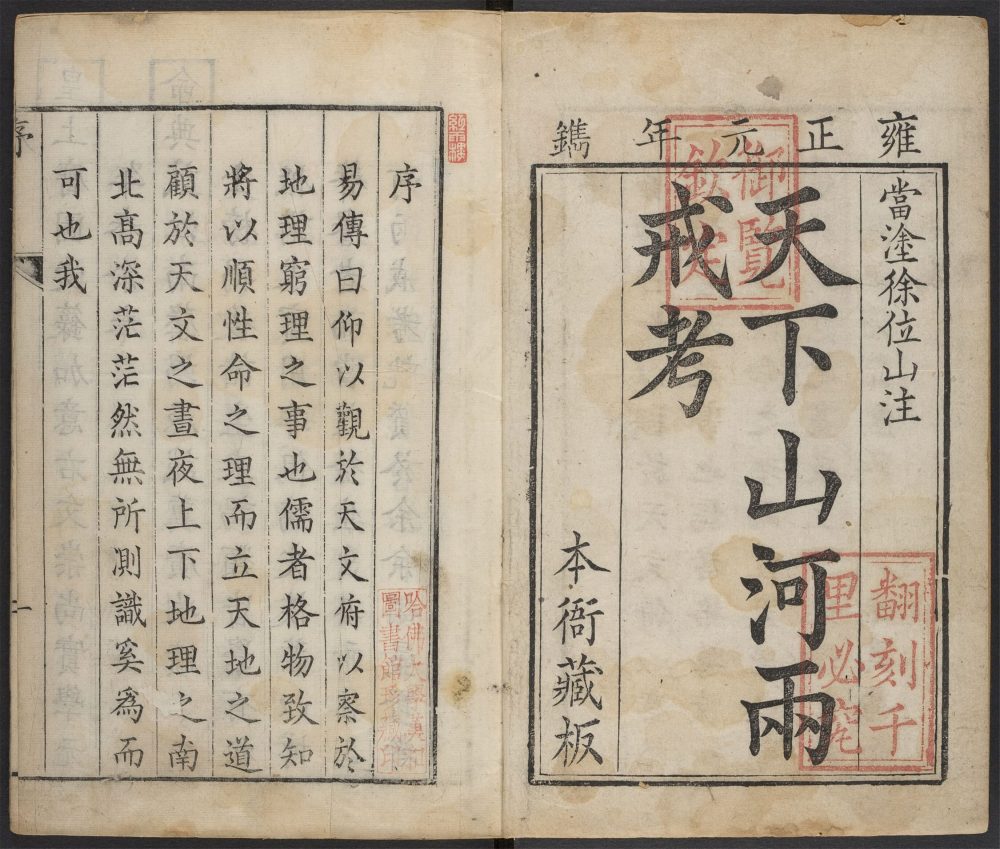 雍正元年鐫
當塗徐位山注
天下山河兩
戒考
本衙藏板
御覽
欽定
翻刻千
里必究
序
易傳曰仰以觀於天文府以察於
地理窮理之事也儒者格物致知
將以順性命之理而立天地之道
顧於天文之晝夜上下地理之南
北高深茫茫然無所測識奚為而
可也我
哈佛大學漢和
圖書館珍藏印
序
一